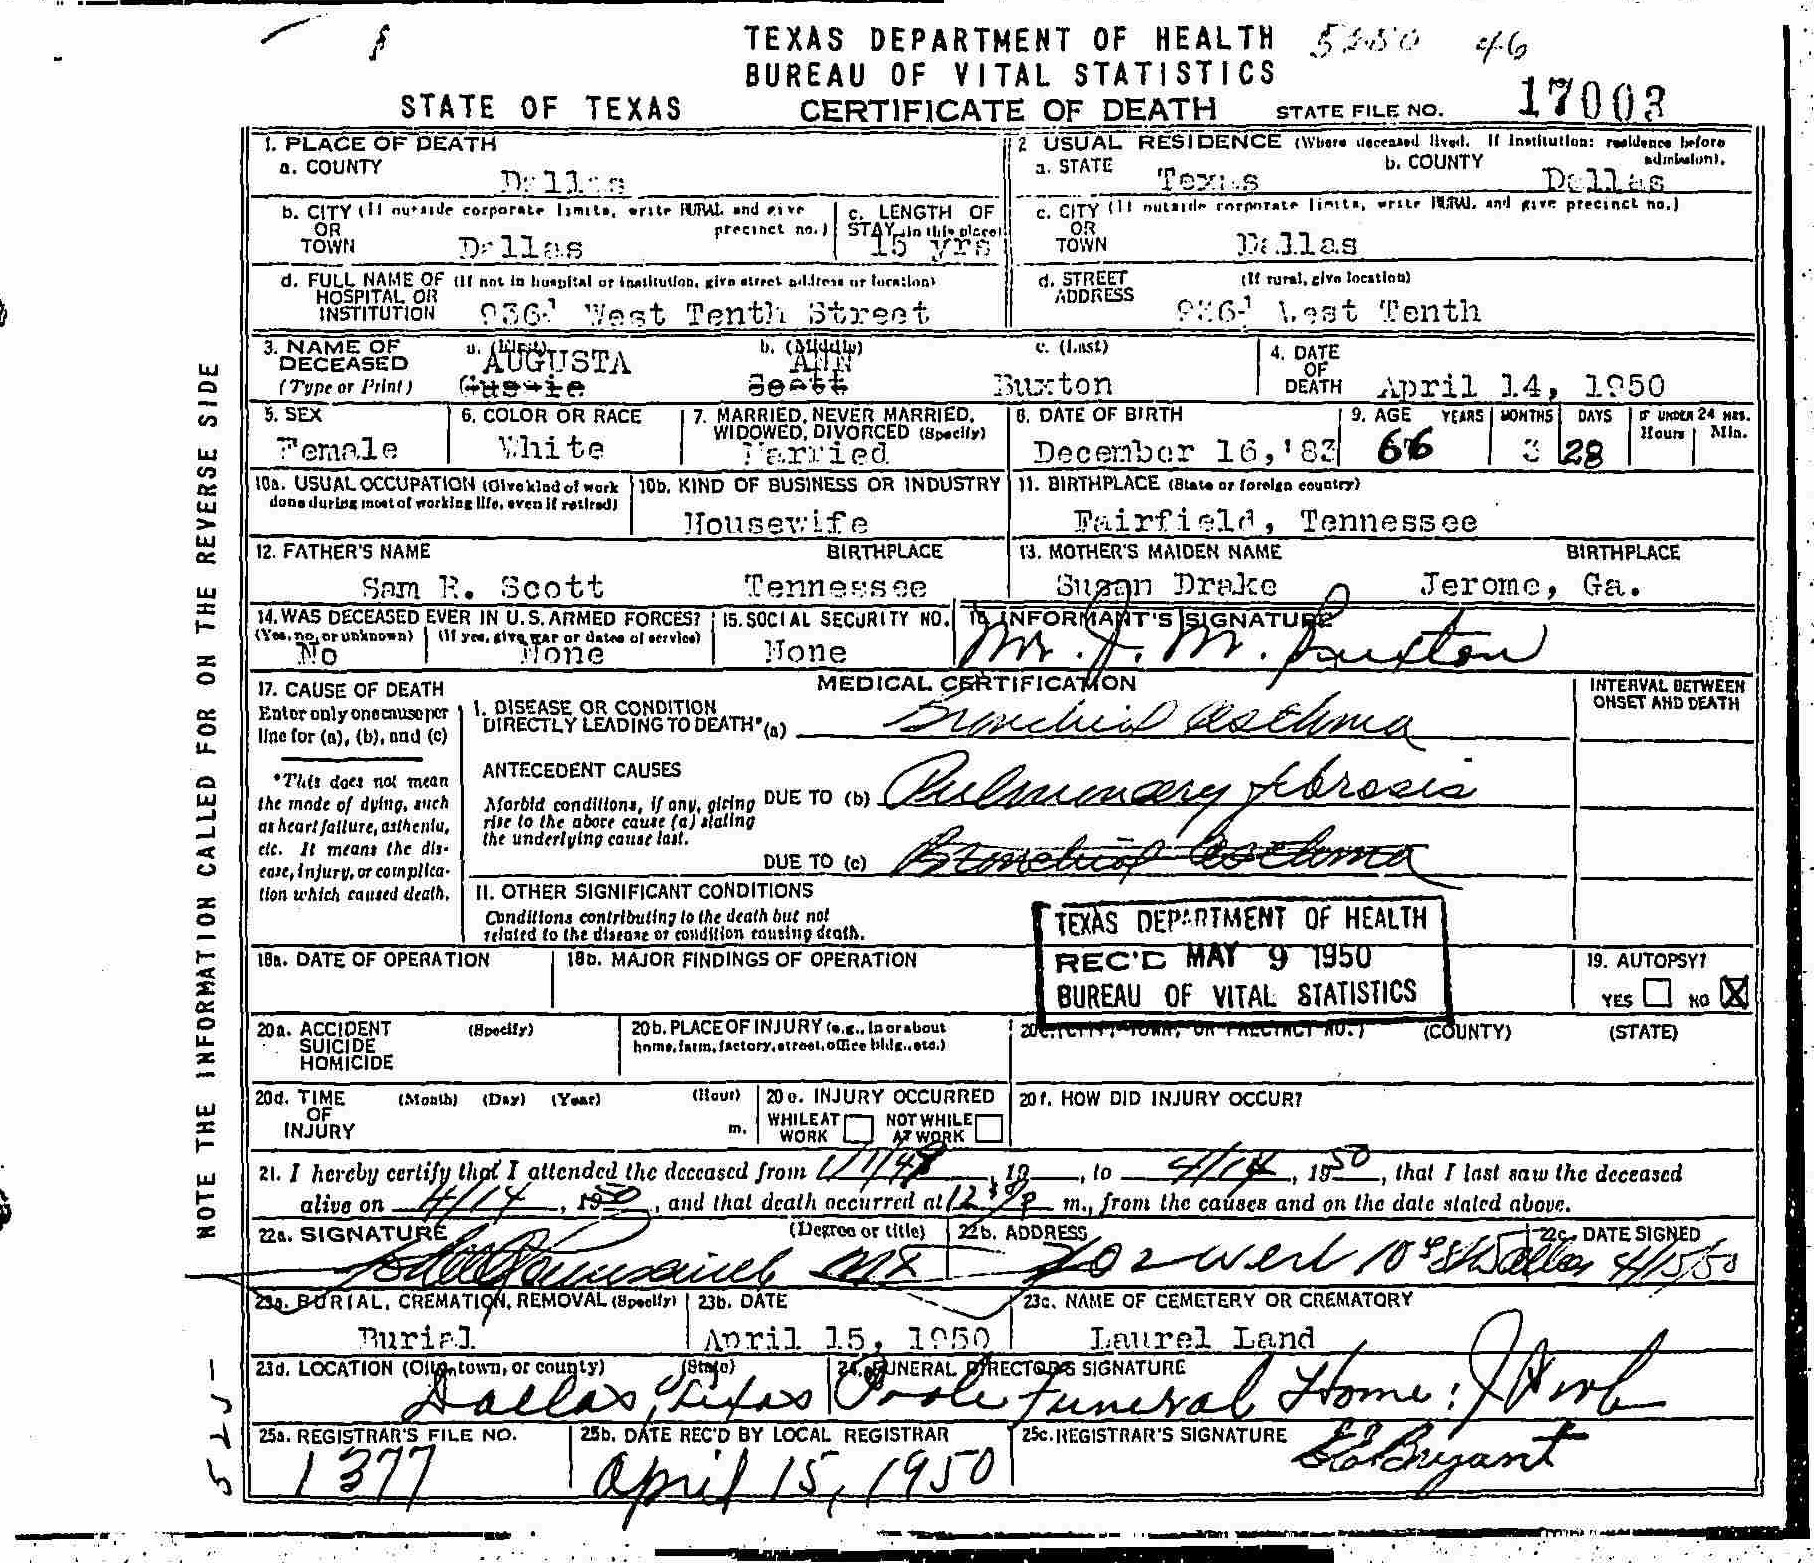 TEXAS DEPARTMENT OF HEALTH 5250 46
BUREAU OF VITAL STATISTICS
STATE OF TEXAS CERTIFICATE OF DEATH STATE FILE NO. 17003
1. PLACE OF DEATH
a. COUNTY Dallas
2 USUAL RESIDENCE (Where deceased lived. If institution: residence before admission).
a. STATE Texas b. COUNTY Dallas
b. CITY (If outside corporate limits, write RURAL and give precinct no.) OR TOWN Dallas
c. LENGTH OF STAY (in this place) 15 yrs
c. CITY (If outside corporate limits, write RURAL and give precinct no.) OR TOWN Dallas
d. FULL NAME OF HOSPITAL OR INSTITUTION (If not in hospital or institution, give street address or location) 936½ West Tenth Street
d. STREET ADDRESS (If rural, give location) 936½ West Tenth
3. NAME OF DECEASED (Type or Print)
a. (First) AUGUSTA Gussie
b. (Middle) ANN Scott
c. (Last) Buxton
4. DATE OF DEATH April 14, 1950
5. SEX Female
6. COLOR OR RACE White
7. MARRIED, NEVER MARRIED, WIDOWED, DIVORCED (Specify) Married
8. DATE OF BIRTH December 16,'83
9. AGE YEARS 66 MONTHS 3 DAYS 28 IF UNDER 24 HRS. Hours Min.
10a. USUAL OCCUPATION (Give kind of work done during most of working life, even if retired)
10b. KIND OF BUSINESS OR INDUSTRY Housewife
11. BIRTHPLACE (State or foreign country) Fairfield, Tennessee
12. FATHER'S NAME BIRTHPLACE
Sam R. Scott Tennessee
13. MOTHER'S MAIDEN NAME BIRTHPLACE
Susan Drake Jerome, Ga.
14. WAS DECEASED EVER IN U.S. ARMED FORCES?
(Yes, no, or unknown) No
(If yes, give war or dates of service) None
15. SOCIAL SECURITY NO. None
16 INFORMANT'S SIGNATURE
Mr. J. M. Buxton
MEDICAL CERTIFICATION
17. CAUSE OF DEATH
Enter only one cause per line for (a), (b), and (c)
*This does not mean the mode of dying, such as heart failure, asthenia, etc. It means the disease, injury, or complication which caused death.
I. DISEASE OR CONDITION DIRECTLY LEADING TO DEATH* (a) Bronchial Asthma
INTERVAL BETWEEN ONSET AND DEATH
ANTECEDENT CAUSES
Morbid conditions, if any, giving rise to the above cause (a) stating the underlying cause last.
DUE TO (b) Pulmonary fibrosis
DUE TO (c) Bronchial Asthma
II. OTHER SIGNIFICANT CONDITIONS
Conditions contributing to the death but not related to the disease or condition causing death.
TEXAS DEPARTMENT OF HEALTH
REC'D MAY 9 1950
BUREAU OF VITAL STATISTICS
18a. DATE OF OPERATION
18b. MAJOR FINDINGS OF OPERATION
19. AUTOPSY?
YES NO X
20a. ACCIDENT SUICIDE HOMICIDE (Specify)
20b. PLACE OF INJURY (e.g., in or about home, farm, factory, street, office bldg., etc.)
20c. (CITY, TOWN, OR PRECINCT NO.) (COUNTY) (STATE)
20d. TIME OF INJURY (Month) (Day) (Year) (Hour) m.
20e. INJURY OCCURRED
WHILE AT WORK NOT WHILE AT WORK
20f. HOW DID INJURY OCCUR?
21. I hereby certify that I attended the deceased from 1/1/48, 19 , to 4/14, 1950, that I last saw the deceased
alive on 4/14, 1950, and that death occurred at m., from the causes and on the date stated above.
22a. SIGNATURE (Degree or title)
22b. ADDRESS
22c. DATE SIGNED 4/15/50
23a. BURIAL, CREMATION, REMOVAL (Specify) Burial
23b. DATE April 15, 1950
23c. NAME OF CEMETERY OR CREMATORY Laurel Land
23d. LOCATION (City, town, or county) (State) Dallas, Texas
24. FUNERAL DIRECTOR'S SIGNATURE
Poole Funeral Home:
25a. REGISTRAR'S FILE NO. 1377
25b. DATE REC'D BY LOCAL REGISTRAR April 15, 1950
25c. REGISTRAR'S SIGNATURE
Bryant
NOTE THE INFORMATION CALLED FOR ON THE REVERSE SIDE